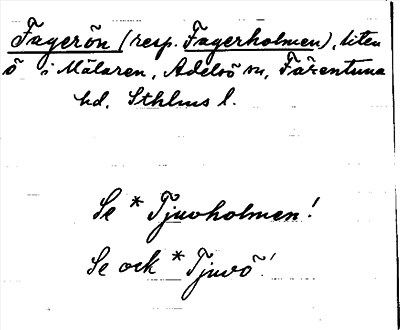 Fagerön (resp. Fagerholmen), liten
ö i Mälaren, Adelsö sn, Färentuna
hd, Sthlms l.
Se * Tjuvholmen!
Se ock * Tjuvö!